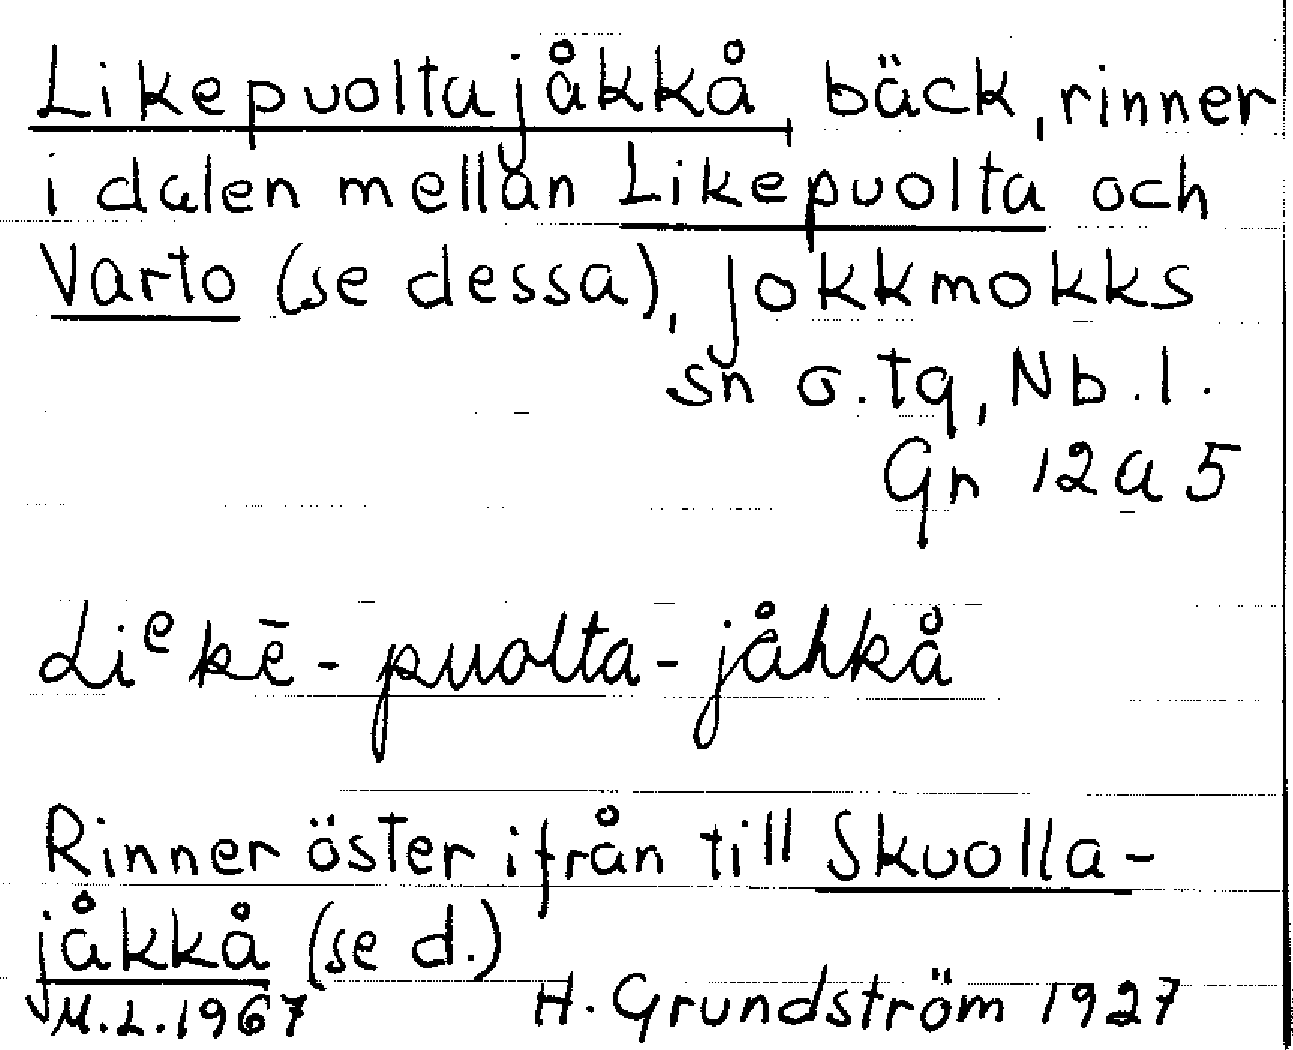 Likepuoltajåkkå, bäck, rinner
i dalen mellan Likepuolta och
Varto (se dessa), Jokkmokks
sn o. tg, Nb. l.
Gn 12 a 5
Liᵉkē-puolta-jåhkå
Rinner öster ifrån till Skuolla-
jåkkå (se d.)
M.L. 1967 H. Grundström 1927